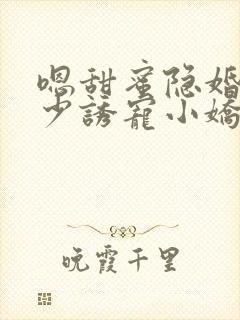 嗯甜蜜隐婚
少誘寵小嬌
晚霞千里